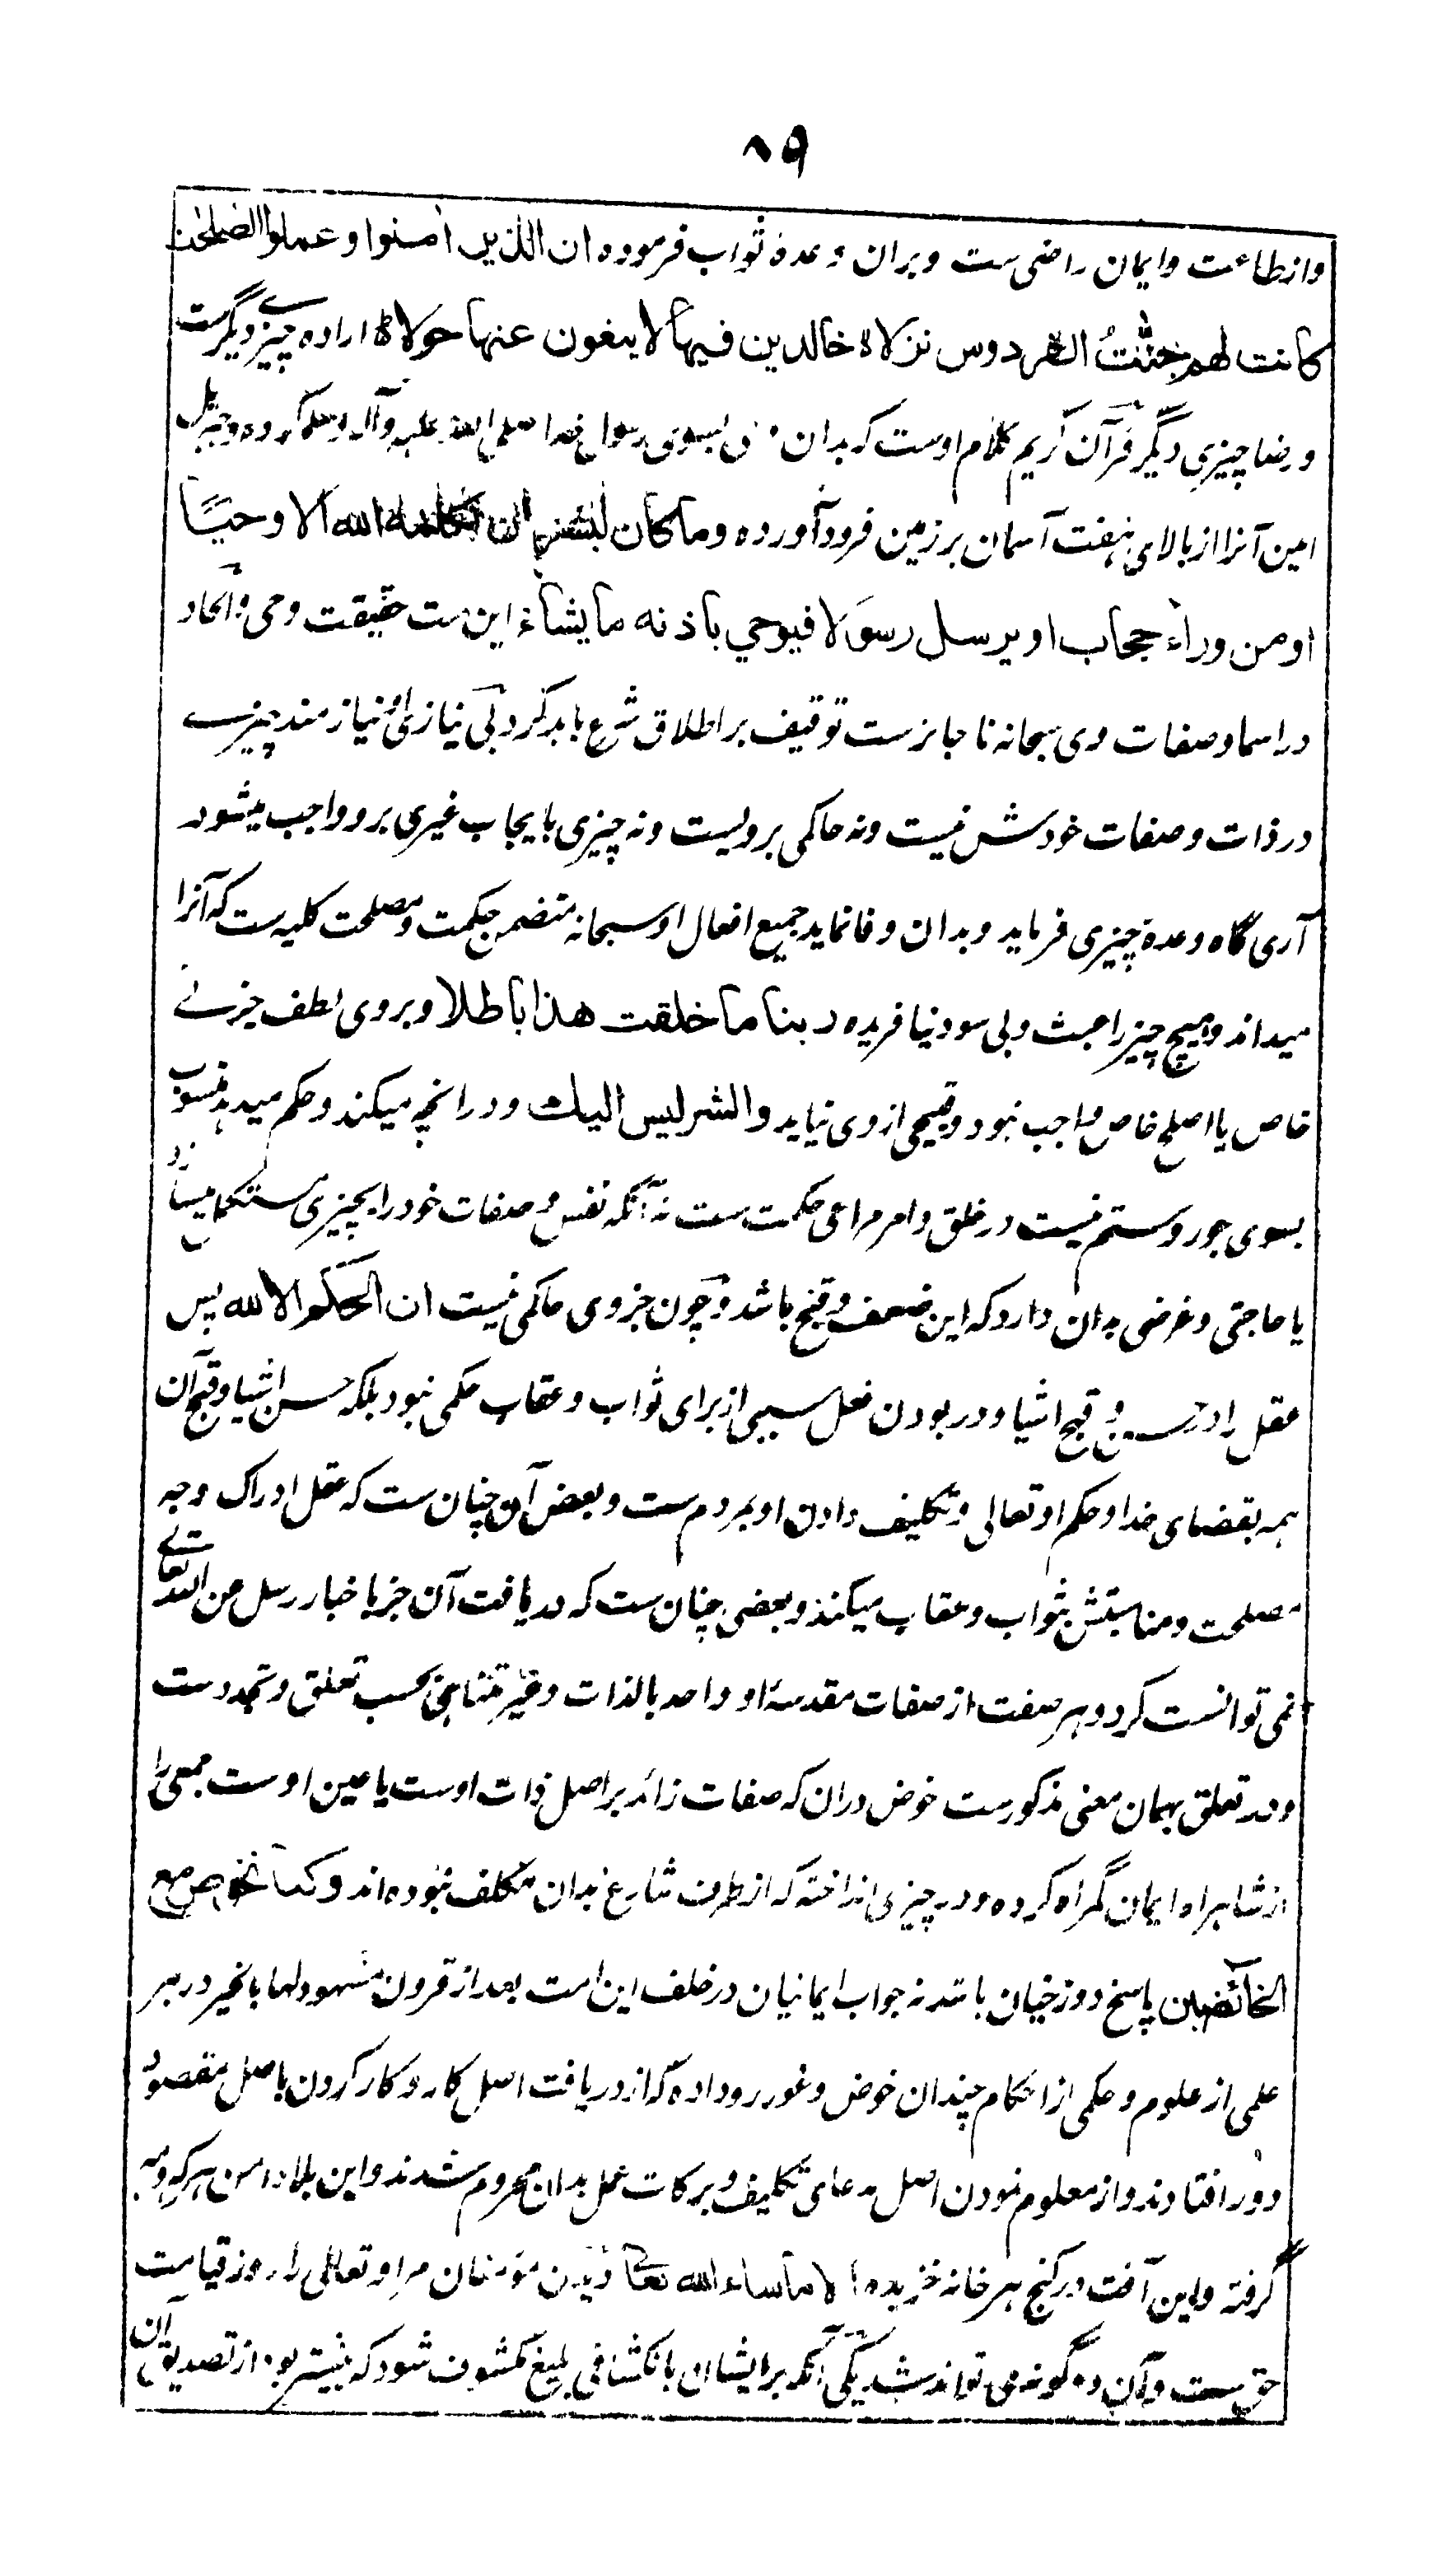 ۸۹
وازطاعت وایمان راضی ست وبران وعدهٔ ثواب فرموده ان الذین اٰمنوا وعملوا الصلحٰت
کانت لهم جنّٰتُ الفردوس نزلاً خالدین فیها لا یبغون عنها حولاً اراده چیزے دیگرست
ورضا چیزی دیگر قرآن کریم کلام اوست که بدان وحی بسوی رسول خدا صلی الله علیه وآله وسلم کرده وجبریل
امین آنرا از بالای هفت آسمان برزمین فرود آورده وما کان لبشر ان یکلمه الله الا وحیًا
اومن وراء حجاب اویرسل رسولا فیوحي باذنه ما یشاء این ست حقیقت وحی والحاد
دراسما وصفات وی سبحانه ناجائزست توقیف براطلاق شرع باید کرد بی نیازی او نیازمند چیزے
درذات وصفات خودش نیست ونه حاکمی برویست ونه چیزی بایجاب غیری برو واجب میشود
آری گاه وعدهٔ چیزی فرماید وبدان وفا نماید جمیع افعال او سبحانه متضمن حکمت ومصلحت کلیه ست که آنرا
میداند وهیچ چیز را عبث وبی سود نیافریده ربنا ما خلقت هذا باطلا وبروی لطف جزئے
خاص یا اصلح خاص واجب نبود وقبیحی ازوی نیاید والشر لیس الیك ودرانچه میکند وحکم میدهد منسوب
بسوی جور وستم نیست درخلق وامر مراعی حکمت ست نه آنکه نفس وصفات خود را بچیزی مستکمل میسازد
یا حاجتی وغرضی بدان دارد که این ضعف وقبح باشد وچون جز وی حاکمی نیست ان الحکم الا لله پس
عقل را در حسن وقبح اشیا ودربودن فعل سببی از برای ثواب وعقاب حکمی نبود بلکه حسن اشیا وقبح آن
همه بقضای خدا وحکم او تعالی وتکلیف دادن او بمردم ست وبعض آن چنان ست که عقل ادراک وجه
مصلحت ومناسبتش بثواب وعقاب میکند وبعضی چنان ست که دریافت آن جز باخبار رسل من الله تعالے
نمی توانست کرد وهر صفت از صفات مقدسهٔ او واحد بالذات وغیر متناهی بحسب تعلق وتجددست
ودر تعلق بهمان معنی مذکورست خوض دران که صفات زائد براصل ذات اوست یا عین اوست جمعی را
ازشاهراه ایمان گمراه کرده ودر چیزی انداخته که ازطرف شارع بدان مکلف نبوده اند وکنا نخوض مع
الخائضین پاسخ دوزخیان باشد نه جواب ایمانیان درخلف این امت بعد از قرون مشهود لها بالخیر درهر
علمی از علوم وحکمی از احکام چندان خوض وغور روداده که ازدریافت اصل کار وکار کردن باصل مقصود
دور افتادند واز معلوم نمودن اصل مدعای تکلیف وبرکات عمل بدان محروم شدند واین بلا دامن هر که ومه
گرفته واین آفت درکنج هر خانه خزیده الا ما شاء الله تعالی دیدن مؤمنان مر او تعالی را روز قیامت
حق ست وآن دو گونه می تواند شد یکی آنکه برایشان بانکشافی بلیغ مکشوف شود که بیشتر بود از تصدیق آن